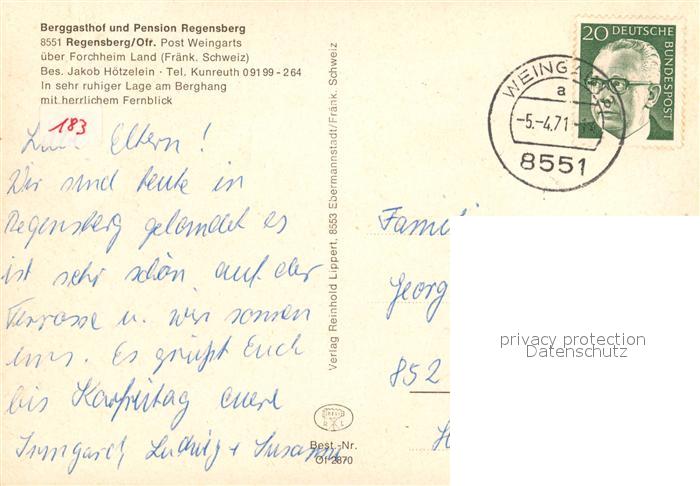 Berggasthof und Pension Regensberg
8551 Regensberg/Ofr. Post Weingarts
über Forchheim Land (Fränk. Schweiz)
Bes. Jakob Hötzelein - Tel. Kunreuth 09199-264
In sehr ruhiger Lage am Berghang
mit herrlichem Fernblick
183
Eltern!
Wir sind heute in
Regensberg gelandet es
ist sehr schön auf der
Terrasse u. wir sonnen
uns. Es grüßt Euch
bis Karfreitag eure
Irmgard, Ludwig + Susanne
Verlag Reinhold Lippert, 8553 Ebermannstadt/Fränk. Schweiz
Best.-Nr.
Of 2870
20 DEUTSCHE
BUNDESPOST
WEINGARTS
a
-5.-4.71
8551
Famili
Georg
852
privacy protection
Datenschutz